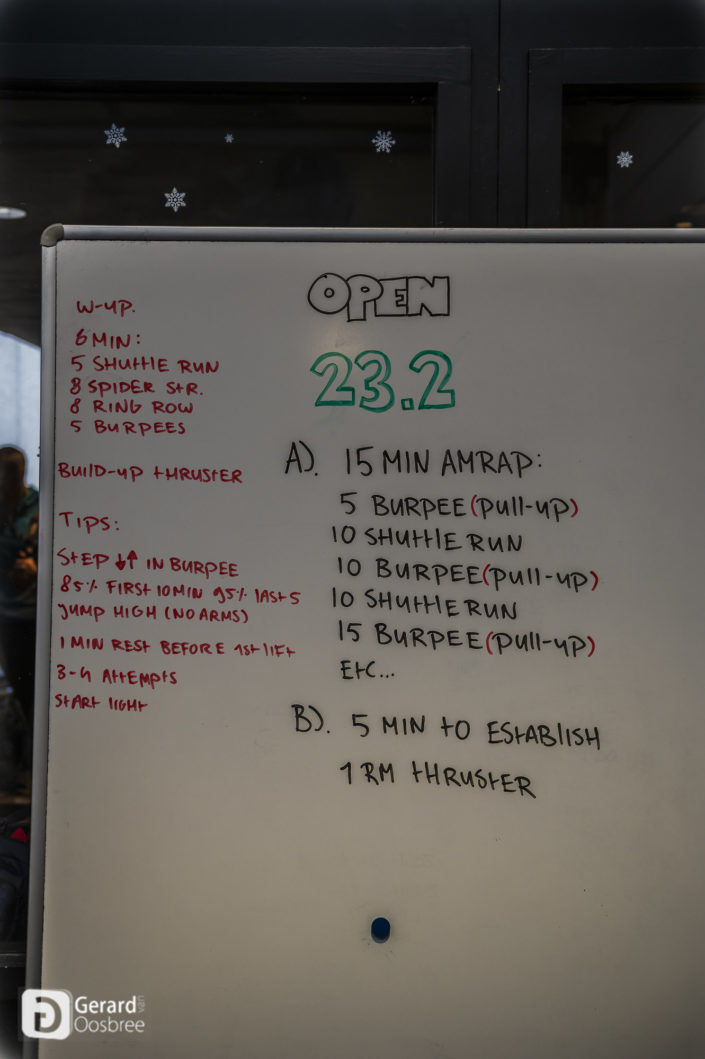 OPEN
23.2
W-UP.
6 MIN:
5 SHUTTLE RUN
8 SPIDER STR.
8 RING ROW
5 BURPEES
BUILD-UP THRUSTER
TIPS:
STEP ↓↑ IN BURPEE
85% FIRST 10MIN 95% LAST 5
JUMP HIGH (NO ARMS)
1 MIN REST BEFORE 1ST LIFT
3-4 ATTEMPTS
START LIGHT
A). 15 MIN AMRAP:
5 BURPEE(PULL-UP)
10 SHUTTLE RUN
10 BURPEE(PULL-UP)
10 SHUTTLE RUN
15 BURPEE(PULL-UP)
ETC...
B). 5 MIN TO ESTABLISH
1 RM THRUSTER
Gerard van
Oosbree